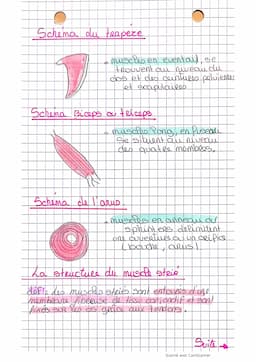 Schéma du trapèze
muscles en éventail, se
trouvent au niveau du
dos et des ceintures pelviennes
et scapulaires
Schéma Biceps ou triceps
muscles long, en fuseau
Se situent au niveau
des quatre membres.
Schéma de l'anus.
muscles en anneau ou
sphincters délimitent
une ouverture ou un orifice
(bouche, anus).
La structure du muscle strié
Les muscles striés sont entourés d'une
membrane fibreuse de tissu conjonctif et sont
fixés sur les os grâce aux tendons.
Suite →
Scanné avec CamScanner